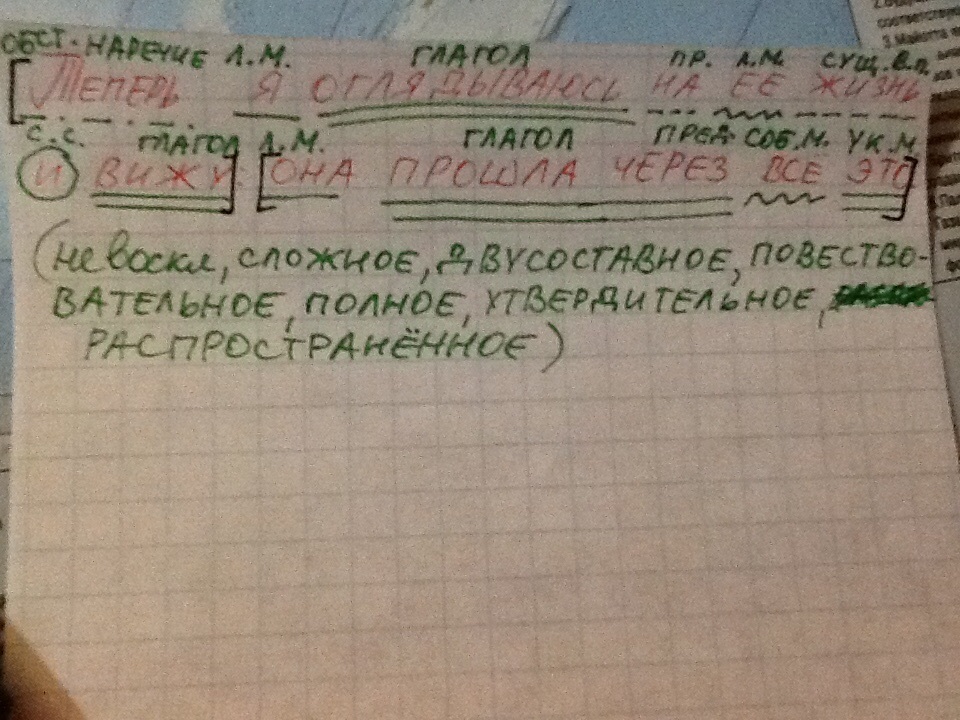 ОБСТ. НАРЕЧИЕ Л.М. ГЛАГОЛ ПР. Л.М. СУЩ.В.П.
[ТЕПЕРЬ Я ОГЛЯДЫВАЮСЬ НА ЕЕ ЖИЗНЬ
С.С. ГЛАГОЛ Л.М. ГЛАГОЛ ПРЕД. СОБ.М. УК.М.
И ВИЖУ] [ОНА ПРОШЛА ЧЕРЕЗ ВСЕ ЭТО]
(невоскл, СЛОЖНОЕ, ДВУСОСТАВНОЕ, ПОВЕСТВО-
ВАТЕЛЬНОЕ, ПОЛНОЕ, УТВЕРДИТЕЛЬНОЕ,
РАСПРОСТРАНЁННОЕ)